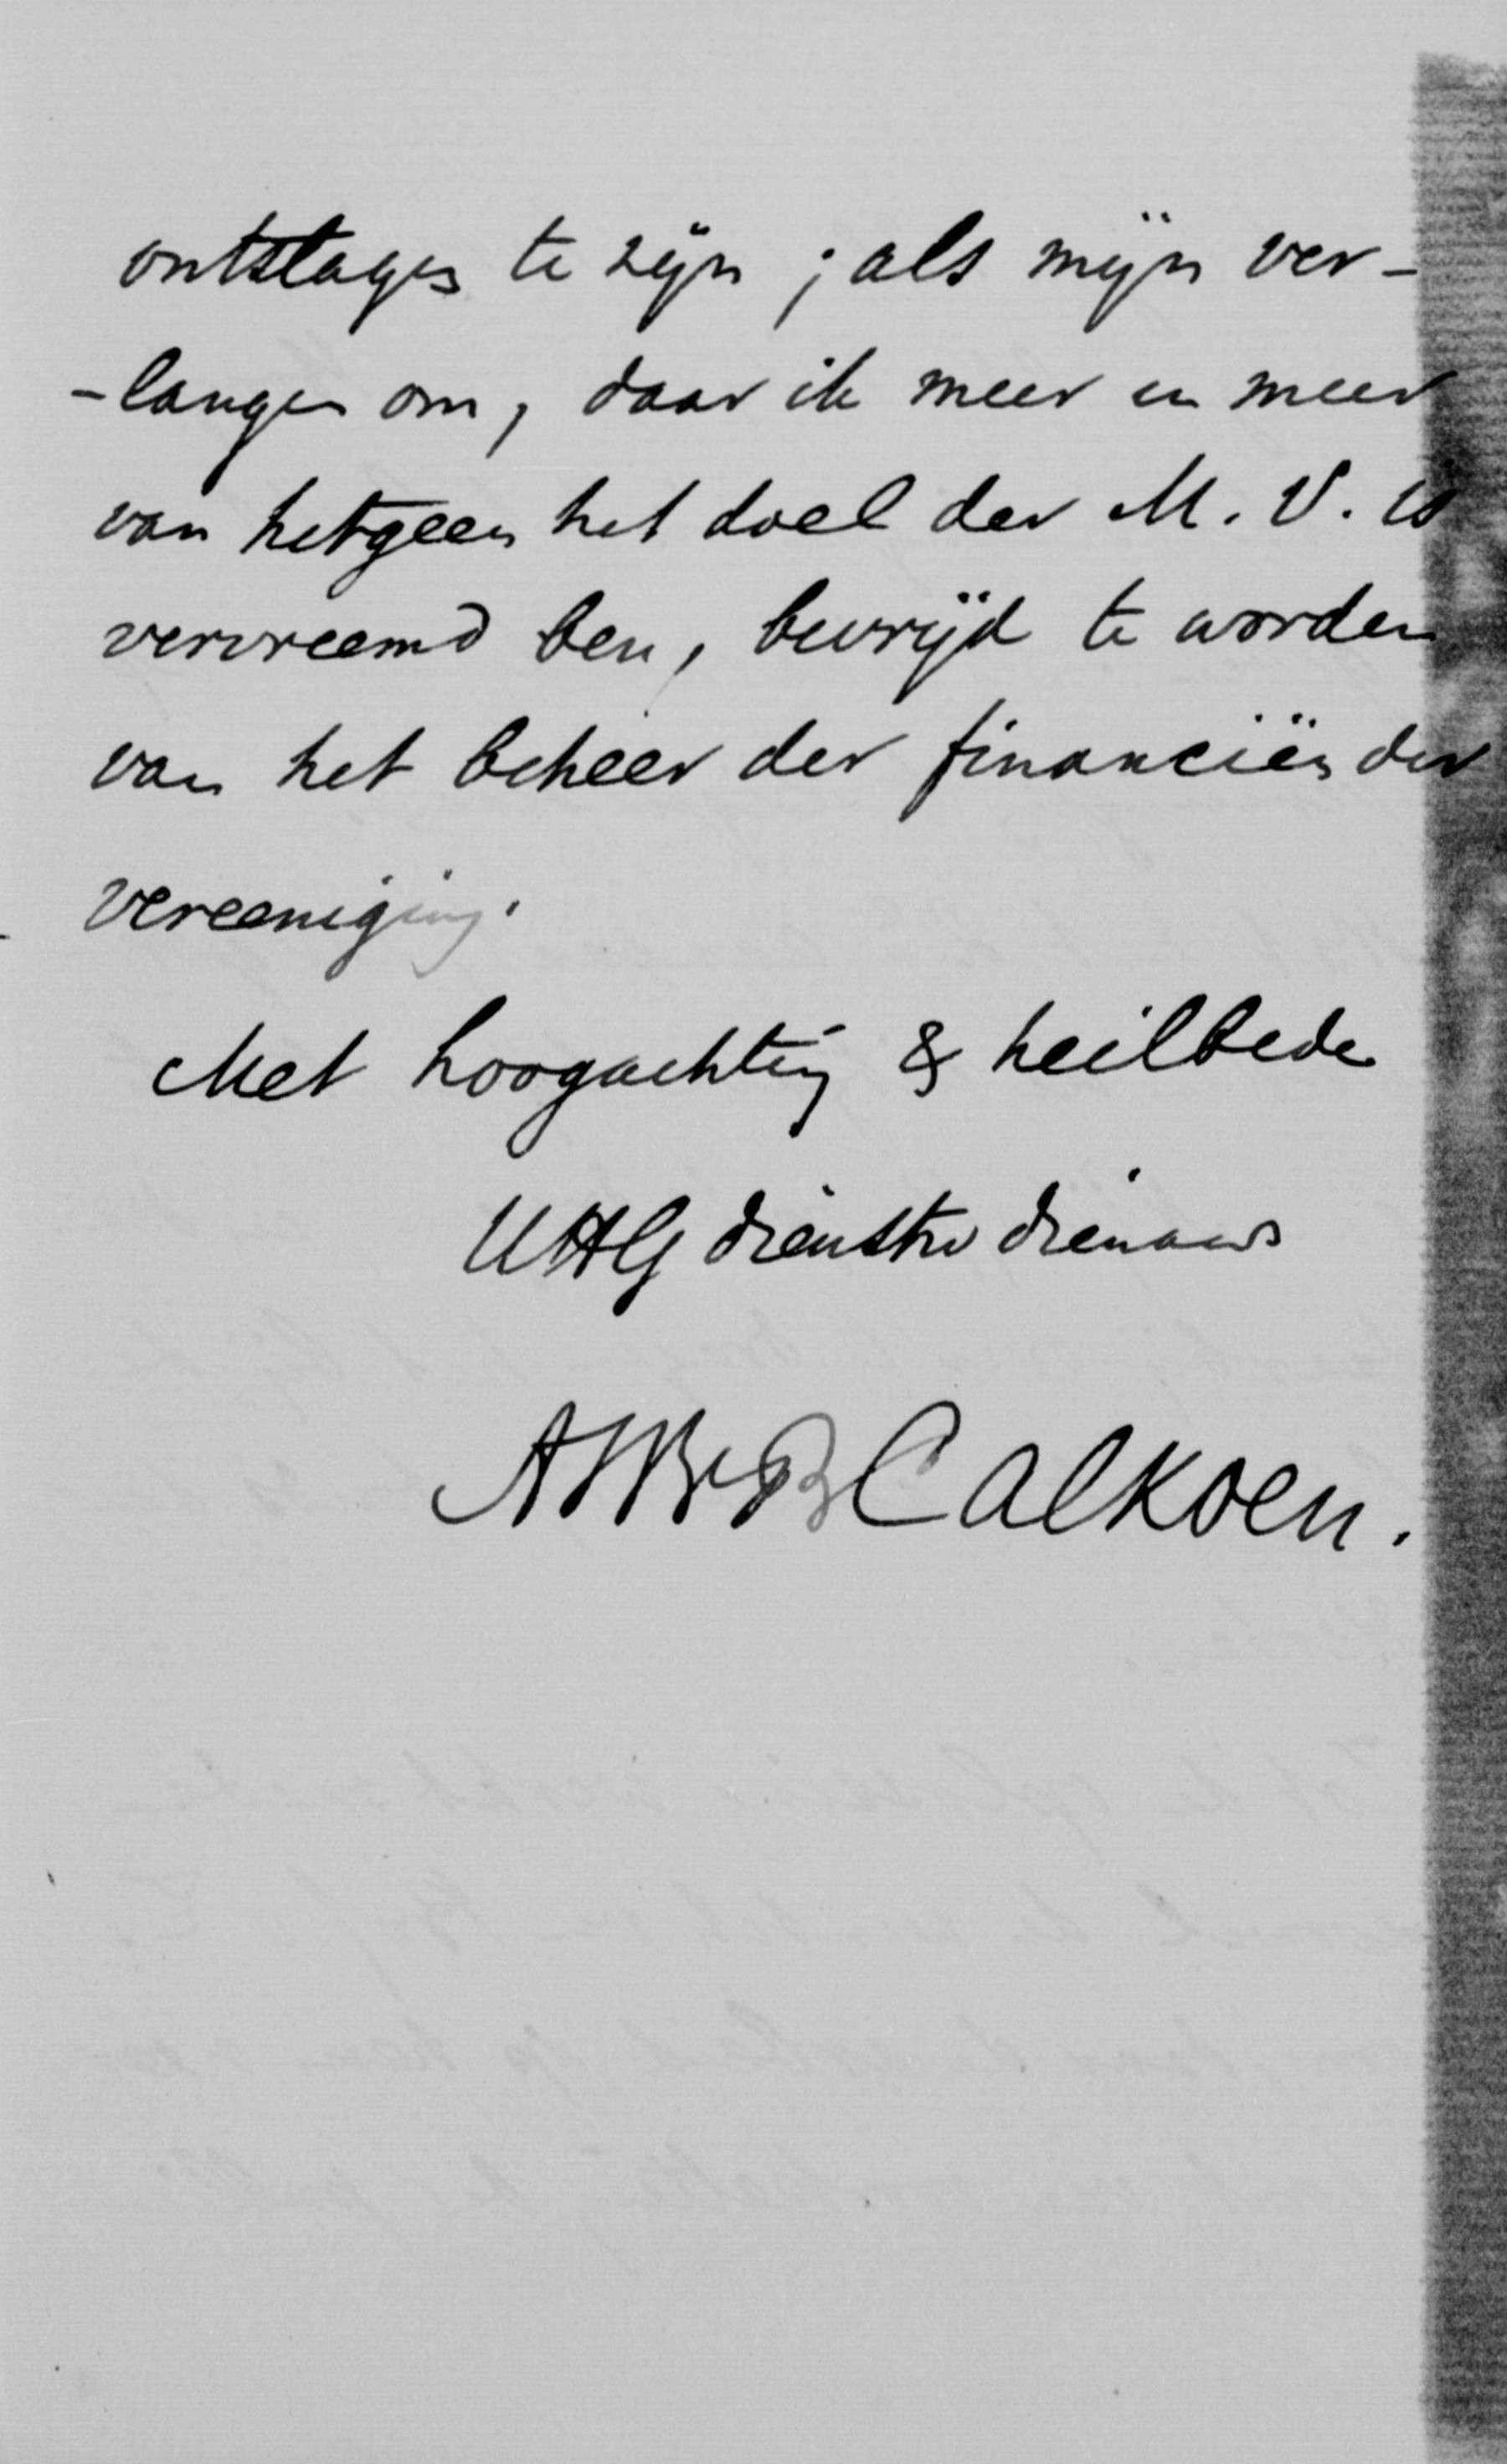 ontslagen te zijn; als mijn ver-
-langen om, daar ik meer en meer
van hetgeen het doel der M. V. is
vervreemd ben, bevrijd te worden
van het beheer der financiën der
vereeniging.
Met hoogachting & heilbede
UHG dienstw dienaar
Calkoen.